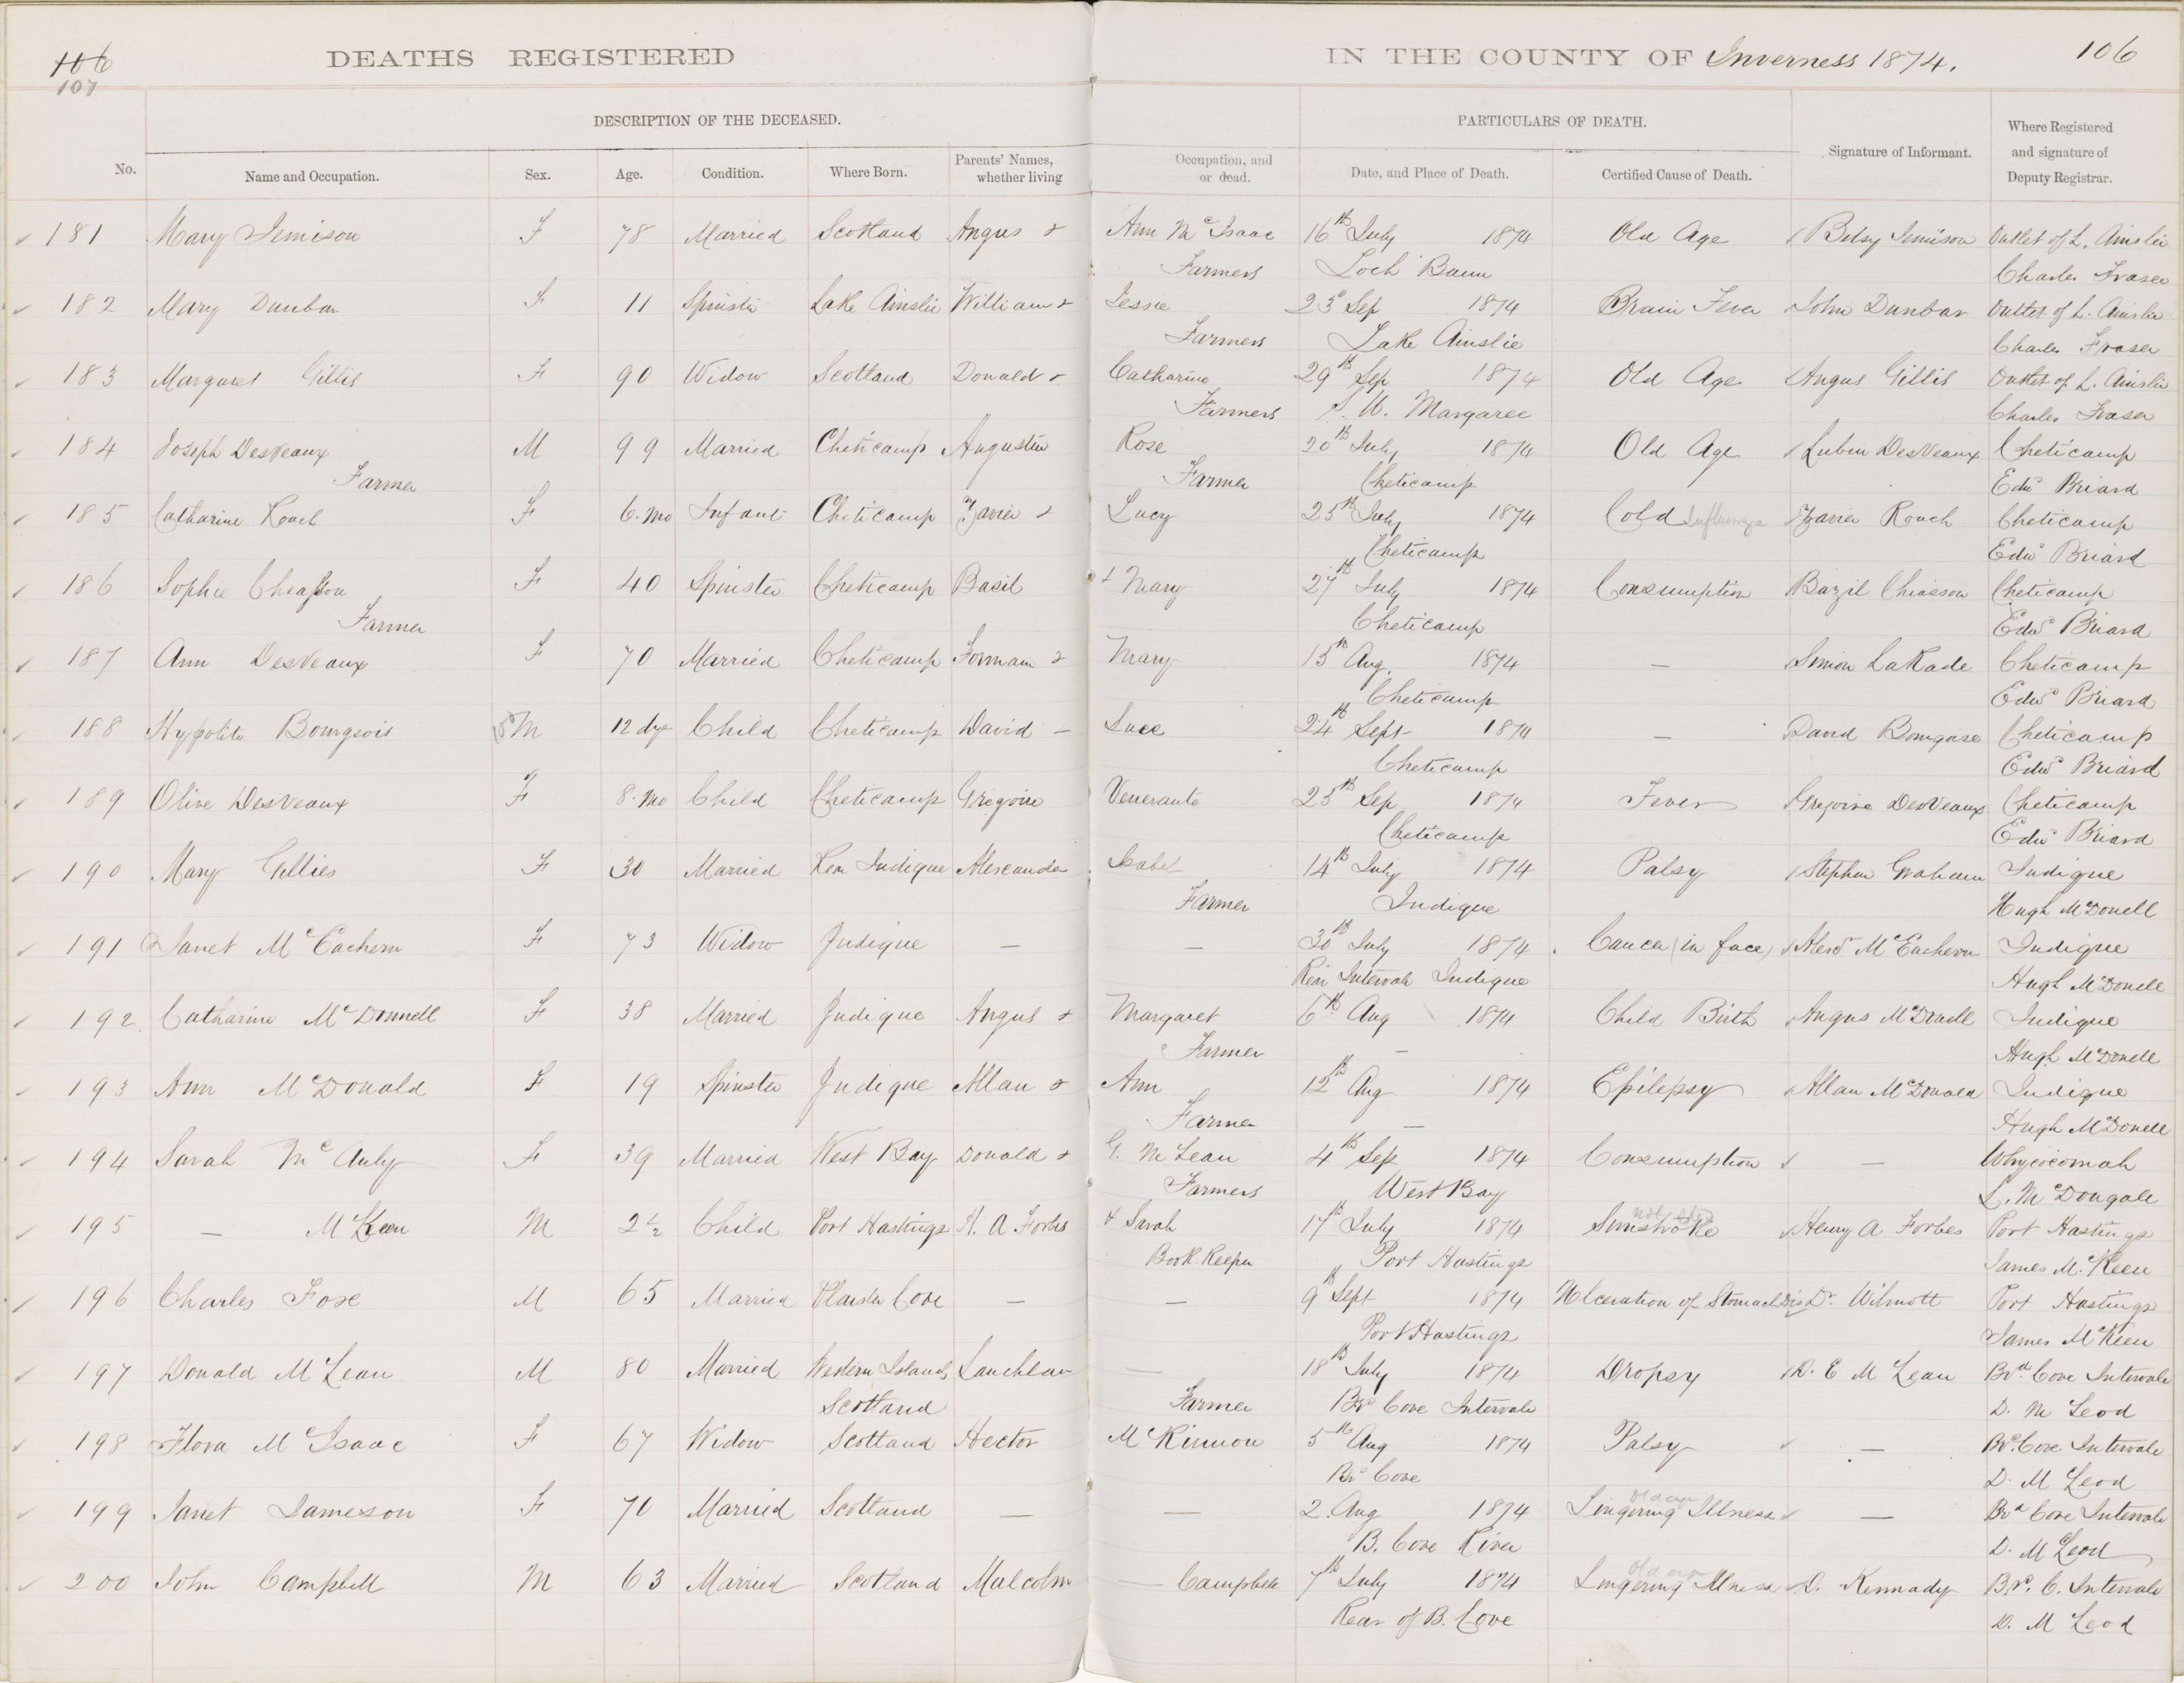 106 DEATHS REGISTERED IN THE COUNTY OF Inverness 1874. 106
107
DESCRIPTION OF THE DECEASED. PARTICULARS OF DEATH. Where Registered
No. Name and Occupation. Sex. Age. Condition. Where Born. Parents' Names, Occupation, and Date, and Place of Death. Certified Cause of Death. Signature of Informant. and signature of
whether living or dead. Deputy Registrar.
181 Mary Jemison F 78 Married Scotland Angus & Ann McIsaac 16th July 1874 Old Age Betsy Jemison Outlet of L. Ainslie
Farmers Loch Bann Charles Fraser
182 Mary Dunbar F 11 Spinster Lake Ainslie William & Jessie 23d Sep 1874 Brain Fever John Dunbar Outlet of L. Ainslie
Farmers Lake Ainslie Charles Fraser
183 Margaret Gillis F 90 Widow Scotland Donald & Catharine 29th Sep 1874 Old Age Angus Gillis Outlet of L. Ainslie
Farmers S. W. Margaree Charles Fraser
184 Joseph DesVeaux M 99 Married Cheticamp Augustin Rose 20th July 1874 Old Age Lubin DesVeaux Cheticamp
Farmer Farmer Cheticamp Edwd Briard
185 Catharine Roach F 6. Mo Infant Cheticamp Zavier & Lucy 25th July 1874 Cold Influenza Zavier Roach Cheticamp
Cheticamp Edwd Briard
186 Sophie Cheasson F 40 Spinster Cheticamp Basil & Mary 27th July 1874 Consumption Bazil Chiasson Cheticamp
Farmer Cheticamp Edwd Briard
187 Ann DesVeaux F 70 Married Cheticamp Formain & Mary 15th Aug. 1874 — Simon LaKade Cheticamp
Cheticamp Edwd Briard
188 Hypolite Bourgeois M 12 dys Child Cheticamp David — Luce 24th Sept 1874 — David Bourgase Cheticamp
Cheticamp Edwd Briard
189 Olive DesVeaux F 8. Mo Child Cheticamp Gregoire Venerante 25th Sep 1874 Fever Gregoire DesVeaux Cheticamp
Cheticamp Edwd Briard
190 Mary Gillies F 30 Married Rear Judique Alexander Isabel 14th July 1874 Palsy Stephen Graham Judique
Farmer Judique Hugh McDonell
191 Janet McEachern F 73 Widow Judique — — 30th July 1874 Cancer (in face) Alexr McEachern Judique
Rear Intervale Judique Hugh McDonell
192 Catharine McDonnell F 38 Married Judique Angus & Margaret 6th Aug 1874 Child Birth Angus McDonell Judique
Farmer — Hugh McDonell
193 Ann McDonald F 19 Spinster Judique Allan & Ann 12th Aug 1874 Epilepsy Allan McDonald Judique
Farmer — Hugh McDonell
194 Sarah McAuly F 39 Married West Bay Donald & G. McLean 4th Sep 1874 Consumption — Whycocomah
Farmers West Bay L. McDougall
195 — McKeen M 2½ Child Port Hastings H. A. Forbes & Sarah 17th July 1874 Sunstroke Henry A Forbes Port Hastings
Book Keeper Port Hastings James McKeen
196 Charles Foxe M 65 Married Plaister Cove — — 9th Sept 1874 Ulceration of Stomach Dr. Wilmott Port Hastings
Port Hastings James McKeen
197 Donald McLean M 80 Married Western Islands Lauchlan — 18th July 1874 Dropsy D. E McLean Brd Cove Intervale
Scotland Farmer Brd Cove Intervale D. McLeod
198 Flora McIsaac F 67 Widow Scotland Hector McKinnon 5th Aug 1874 Palsy — Brd Cove Intervale
Brd Cove D. McLeod
199 Janet Jameson F 70 Married Scotland — — 2. Aug 1874 Lingering Illness old age — Brd Cove Intervale
B. Cove River D. McLeod
200 John Campbell M 63 Married Scotland Malcolm — Campbell 7th July 1874 Lingering Illness old age D. Kennady Brd. C. Intervale
Rear of B. Cove D. McLeod